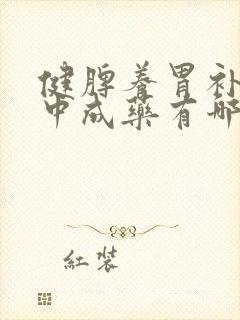 健脾養胃补
中成藥有哪
紅裝